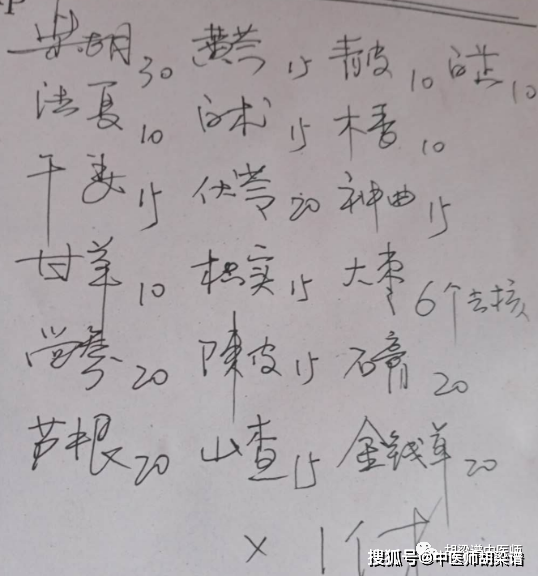 柴胡30 黄芩15 青皮10 白芷10
法夏10 白术15 木香10
干姜15 伏苓20 神曲15
甘草10 枳实15 大枣6个去核
党参20 陳皮15 石膏20
芦根20 山查15 金钱草20
× 1付
胡梁谱中医师
搜狐号@中医师胡梁谱